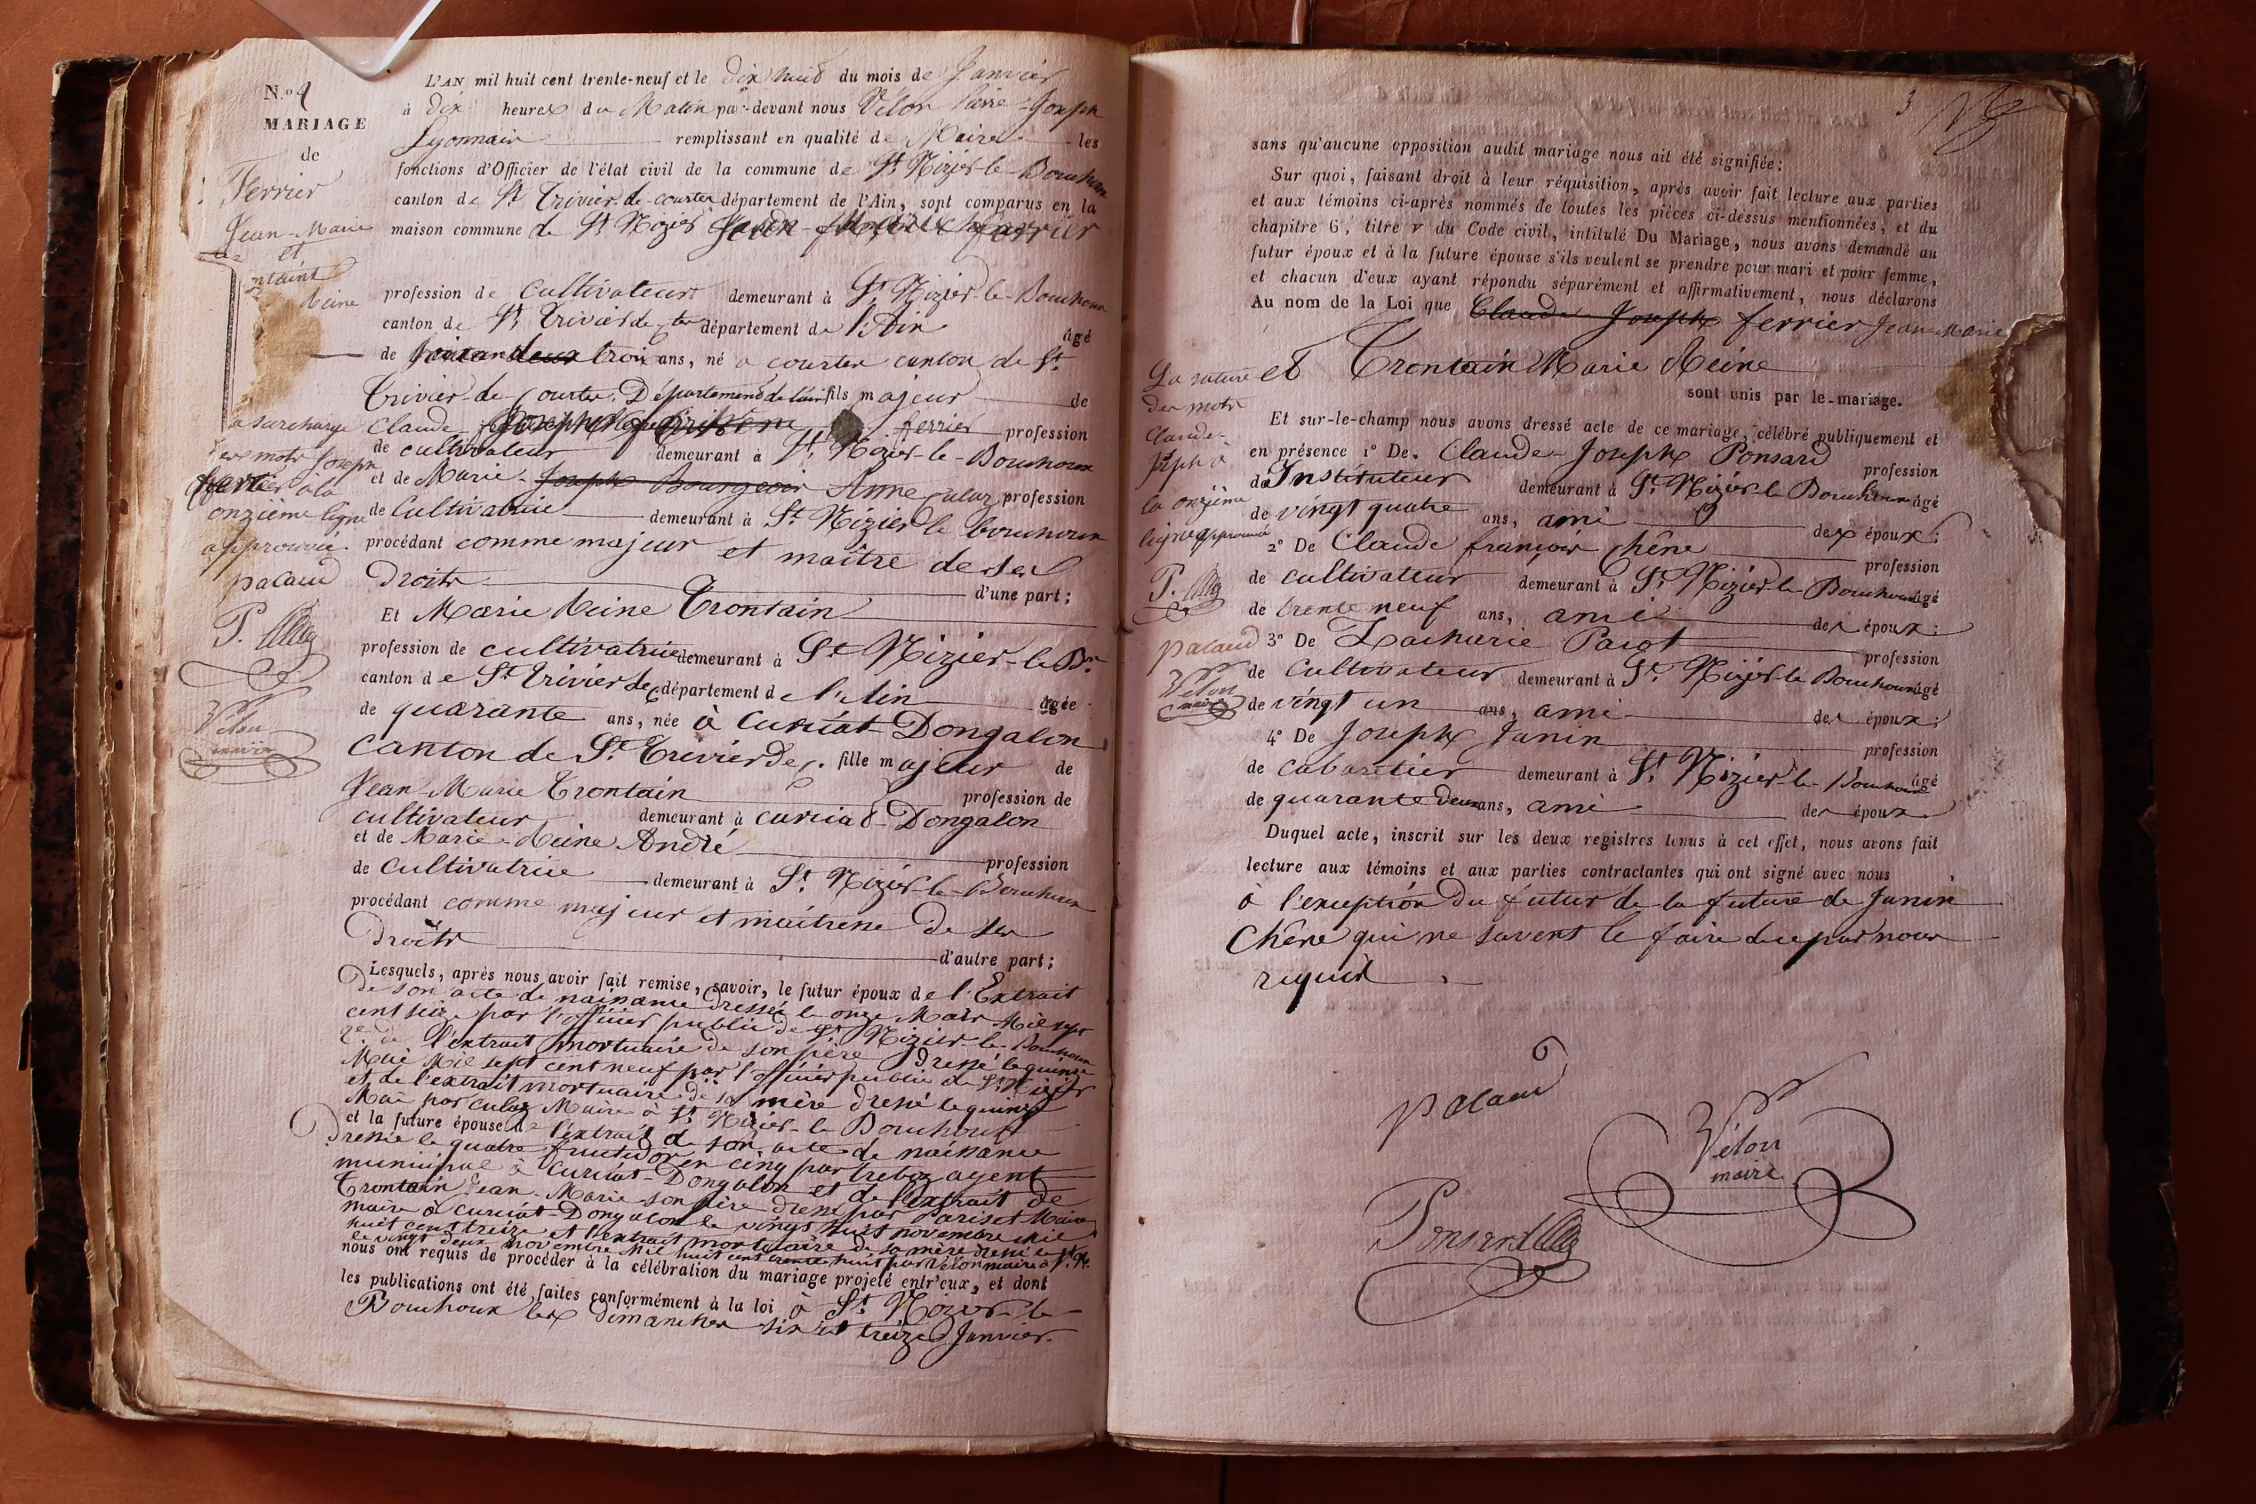 N.º 4
MARIAGE
de
Ferrier
Jean-Marie
et
Reine
la surcharge
des mots Joseph
ferrier a la
onzieme ligne
approuvée.
palaud
P.
Vélon
maire
L'AN mil huit cent trente-neuf et le dix huit du mois de Janvier
à dix heures du Matin par-devant nous Vélon Pierre-Joseph
Lyonnais remplissant en qualité de Maire les
fonctions d'Officier de l'état civil de la commune de St Nizier-le-Bouchoux
canton de St Trivier-de-courtes département de l'Ain, sont comparus en la
maison commune de St Nizier Jean-Marie ferrier
profession de Cultivateur demeurant à St Nizier-le-Bouchoux
canton de St Trivier de Ctes département de l'Ain âgé
de trois ans, né a courtes canton de St
Trivier-de-Courtes, Département de l'ain fils majeur de
Claude ferrier profession
de cultivateur demeurant à St Nizier-le-Bouchoux
et de Marie-Joseph Bourgeois Anne Culaz profession
de Cultivatrice demeurant à St Nizier le bouchoux
procédant comme majeur et maître de ses
Droits d'une part;
Et Marie Reine Trontain
profession de cultivatrice demeurant à St Nizier-le-Bx
canton de St Trivier de C. département de l'Ain âgée
de quarante ans, née à Curciat-Dongalon
canton de St Trivier de C. fille majeur de
Jean-Marie Trontain profession de
cultivateur demeurant à curciat-Dongalon
et de Marie-Reine André profession
de Cultivatrice demeurant à St Nizier-le-Bouchoux
procédant comme majeur et maitresse de ses
Droits d'autre part;
Lesquels, après nous avoir fait remise, savoir, le futur époux de l'Extrait
de son acte de naissance dressé le onze Mars Mil sept
cent seize par l'officier public de St Nizier-le-Bouchoux
2e de l'extrait mortuaire de son père dressé le quinze
Mai Mil sept cent neuf par l'officier public de St Nizier
et de l'extrait mortuaire de sa mère dressé le quinze
Mai par culaz Maire à St Nizier-le Bouchoux
et la future épouse de l'extrait de son acte de naissance
dressé le quatre fructidor en cinq par treboz agent
municipal à Curciat-Dongalon et de l'extrait de
Trontain Jean-Marie son père dressé par Pariset Maire
maire à curciat-Dongalon le vingt huit novembre mil
huit cent treize et l'extrait mortuaire de sa mère dressé le
le vingt deux novembre Mil huit cent trente huit par Vélon maire à St N.
nous ont requis de procéder à la célébration du mariage projeté entr'eux, et dont
les publications ont été faites conformément à la loi à St Nizier-le-
Bouchoux les dimanches six et treize Janvier.
3
sans qu'aucune opposition audit mariage nous ait été signifiée:
Sur quoi, faisant droit à leur réquisition, après avoir fait lecture aux parties
et aux témoins ci-après nommés de toutes les pièces ci-dessus mentionnées, et du
chapitre 6, titre v du Code civil, intitulé Du Mariage, nous avons demandé au
futur époux et à la future épouse s'ils veulent se prendre pour mari et pour femme,
et chacun d'eux ayant répondu séparément et affirmativement, nous déclarons
Au nom de la Loi que Claude Joseph ferrier Jean Marie
et Trontain Marie Reine
sont unis par le mariage.
La rature
des mots
Claude-
Joseph a
la onzième
ligne approuvé
P.
palaud
Vélon
maire
Et sur-le-champ nous avons dressé acte de ce mariage, célébré publiquement et
en présence 1º De. Claude-Joseph Ponsard profession
d'Instituteur demeurant à St Nizier-le Bouchoux âgé
de vingt quatre ans, ami des époux;
2º De Claude françois chêne profession
de cultivateur demeurant à St Nizier-le-Bouchoux âgé
de trente neuf ans, ami des époux;
3º De Zacharie Pacot profession
de Cultivateur demeurant à St Nizier-le Bouchoux âgé
de vingt un ans, ami des époux;
4º De Joseph Janin profession
de cabaretier demeurant à St Nizier-le-Bouchoux âgé
de quarante deux ans, ami des époux.
Duquel acte, inscrit sur les deux registres tenus à cet effet, nous avons fait
lecture aux témoins et aux parties contractantes qui ont signé avec nous
à l'exception du futur de la future de Janin
Chêne qui ne savent le faire de ce par nous
requis.
palaud
Vélon
maire
Ponsard